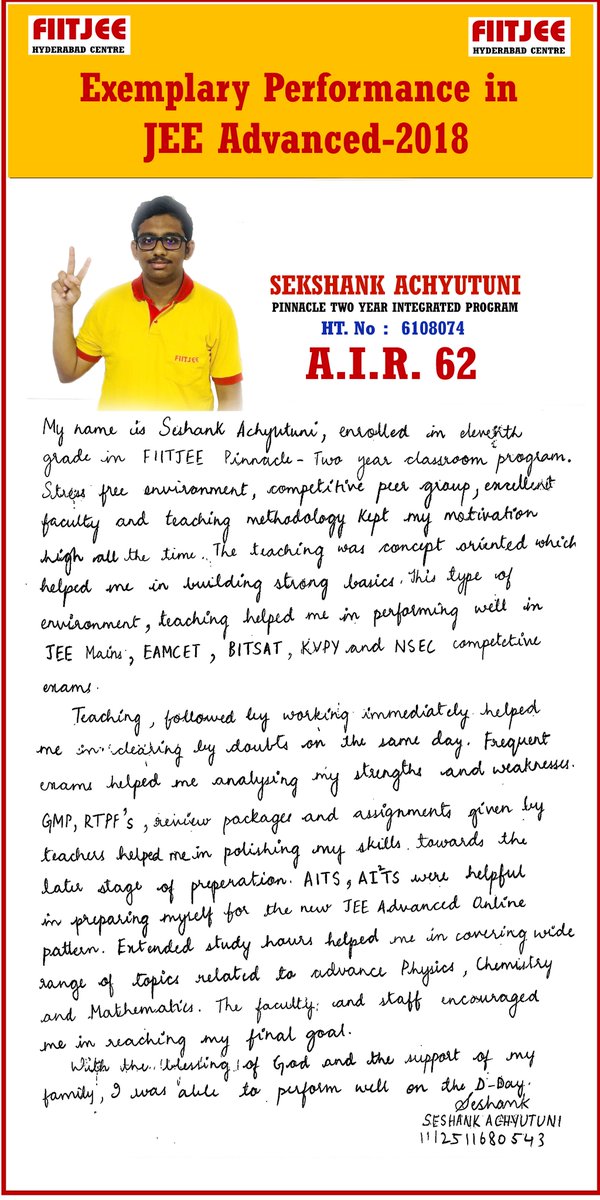 FIITJEE
HYDERABAD CENTRE
FIITJEE
HYDERABAD CENTRE
Exemplary Performance in
JEE Advanced-2018
FIITJEE
SEKSHANK ACHYUTUNI
PINNACLE TWO YEAR INTEGRATED PROGRAM
HT. No : 6108074
A.I.R. 62
My name is Seshank Achyutuni, enrolled in eleventh
grade in FIITJEE Pinnacle - Two year classroom program.
Stress free environment, competitive peer group, excellent
faculty and teaching methodology kept my motivation
high all the time. The teaching was concept oriented which
helped me in building strong basics. This type of
environment, teaching helped me in performing well in
JEE Mains, EAMCET, BITSAT, KVPY and NSEC competetive
exams.
Teaching, followed by working immediately helped
me in clearing by doubts on the same day. Frequent
exams helped me analysing my strengths and weaknesses.
GMP, RTPF's, review packages and assignments given by
teachers helped me in polishing my skills towards the
later stage of preperation. AITS, AI²TS were helpful
in preparing myself for the new JEE Advanced Online
pattern. Extended study hours helped me in covering wide
range of topics related to advance Physics, Chemistry
and Mathematics. The faculty and staff encouraged
me in reaching my final goal.
With the blessing of God and the support of my
family, I was able to perform well on the D-Day.
Seshank
SESHANK ACHYUTUNI
1112511680543